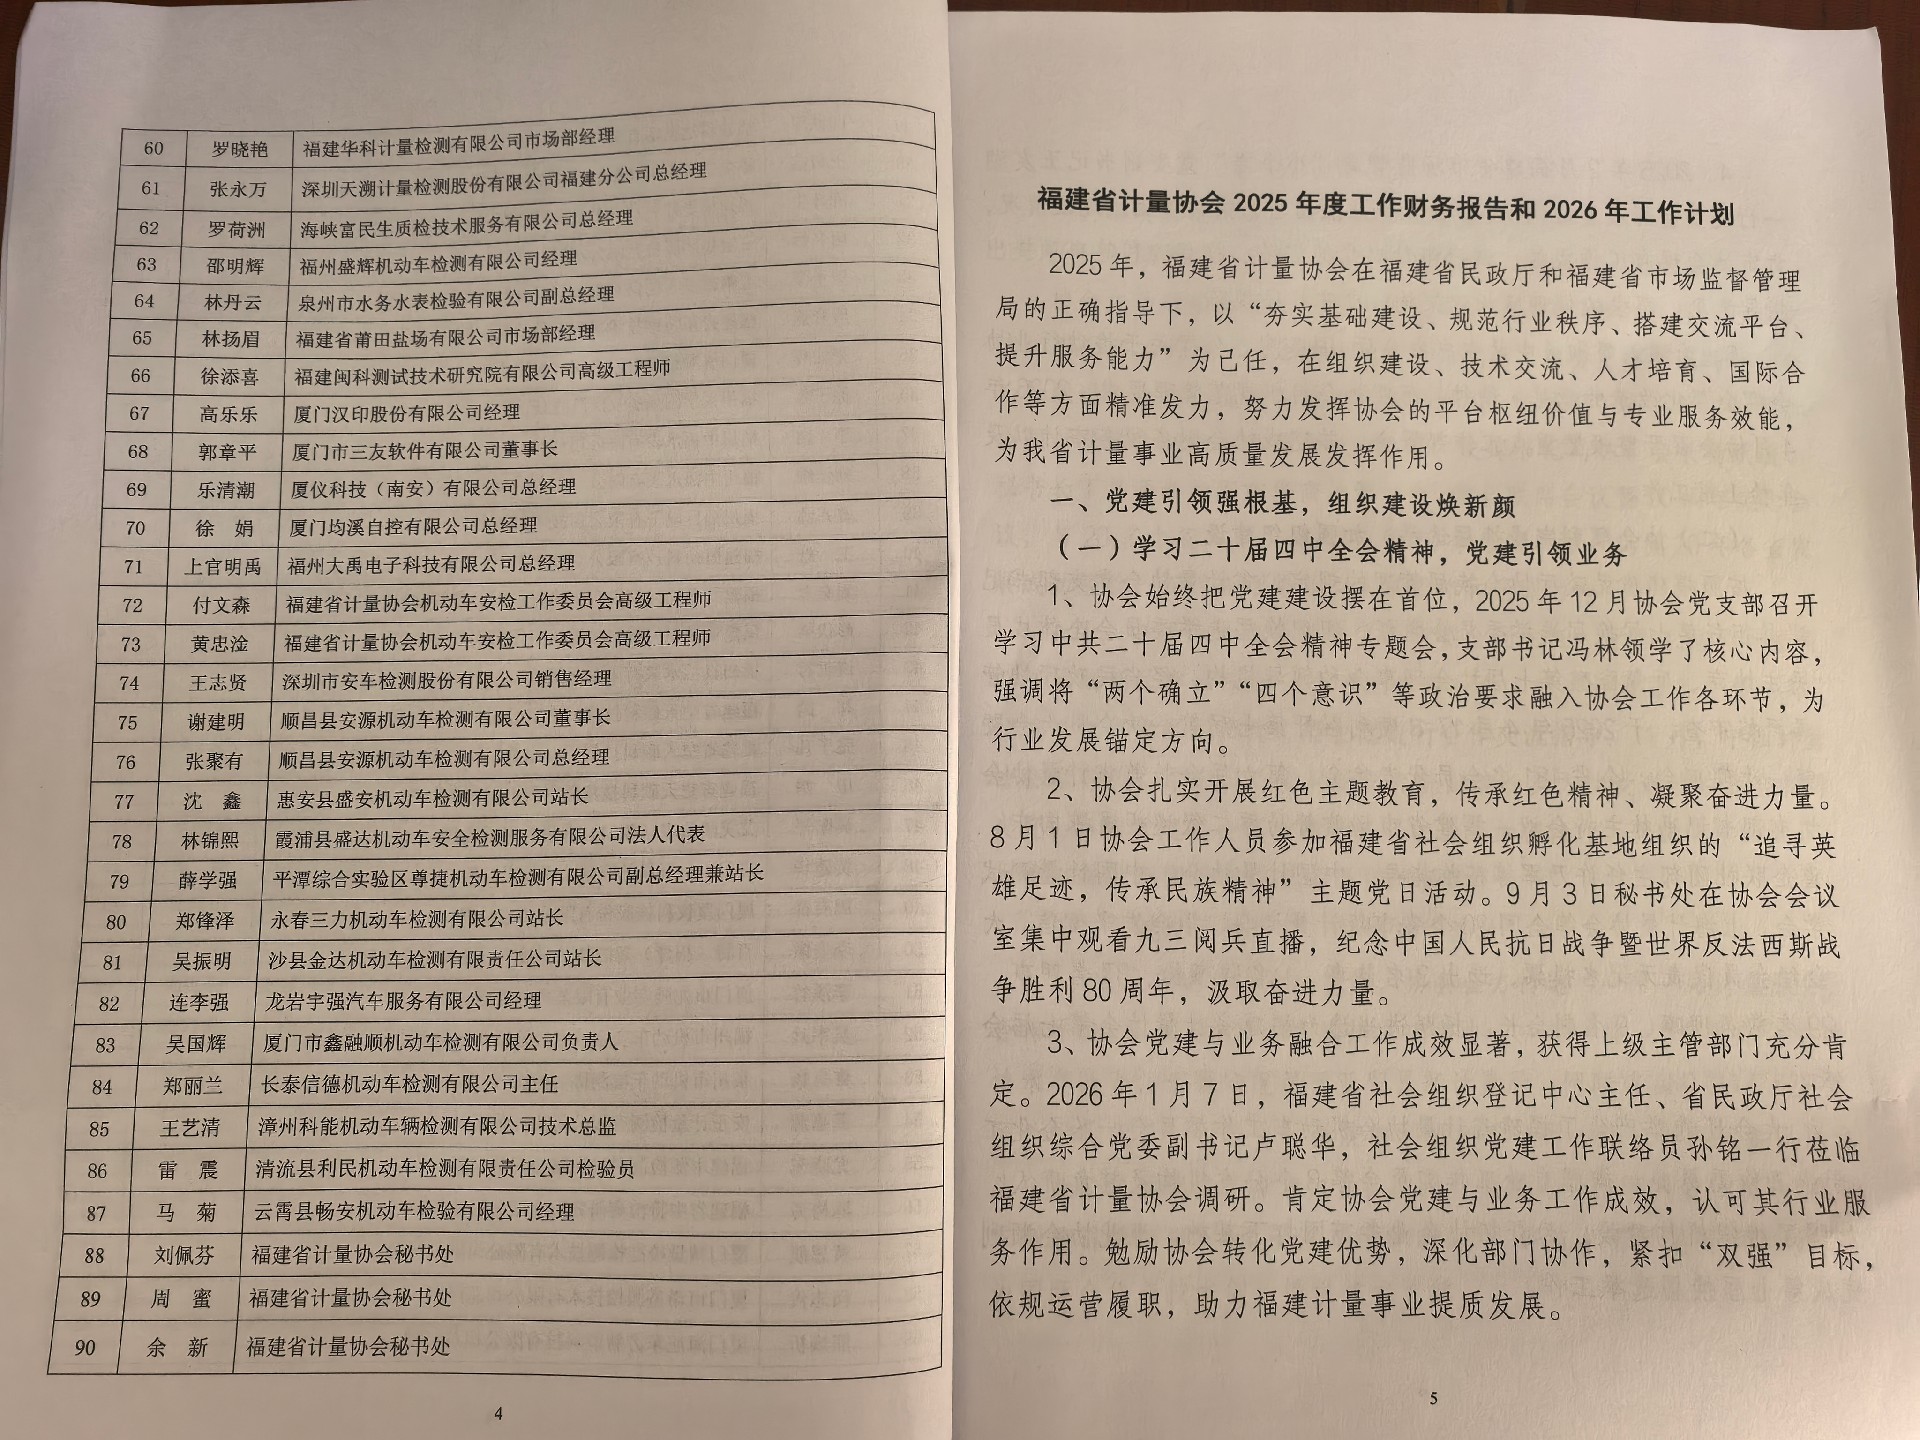 60 罗晓艳 福建华科计量检测有限公司市场部经理
61 张永万 深圳天溯计量检测股份有限公司福建分公司总经理
62 罗荷洲 海峡富民生质检技术服务有限公司总经理
63 邵明辉 福州盛辉机动车检测有限公司经理
64 林丹云 泉州市水务水表检验有限公司副总经理
65 林扬眉 福建省莆田盐场有限公司市场部经理
66 徐添喜 福建闽科测试技术研究院有限公司高级工程师
67 高乐乐 厦门汉印股份有限公司经理
68 郭章平 厦门市三友软件有限公司董事长
69 乐清潮 厦仪科技（南安）有限公司总经理
70 徐 娟 厦门均溪自控有限公司总经理
71 上官明禹 福州大禹电子科技有限公司总经理
72 付文森 福建省计量协会机动车安检工作委员会高级工程师
73 黄忠淦 福建省计量协会机动车安检工作委员会高级工程师
74 王志贤 深圳市安车检测股份有限公司销售经理
75 谢建明 顺昌县安源机动车检测有限公司董事长
76 张聚有 顺昌县安源机动车检测有限公司总经理
77 沈 鑫 惠安县盛安机动车检测有限公司站长
78 林锦熙 霞浦县盛达机动车安全检测服务有限公司法人代表
79 薛学强 平潭综合实验区尊捷机动车检测有限公司副总经理兼站长
80 郑锋泽 永春三力机动车检测有限公司站长
81 吴振明 沙县金达机动车检测有限责任公司站长
82 连李强 龙岩宇强汽车服务有限公司经理
83 吴国辉 厦门市鑫融顺机动车检测有限公司负责人
84 郑丽兰 长泰信德机动车检测有限公司主任
85 王艺清 漳州科能机动车辆检测有限公司技术总监
86 雷 震 清流县利民机动车检测有限责任公司检验员
87 马 菊 云霄县畅安机动车检验有限公司经理
88 刘佩芬 福建省计量协会秘书处
89 周 蜜 福建省计量协会秘书处
90 余 新 福建省计量协会秘书处
4
福建省计量协会 2025 年度工作财务报告和 2026 年工作计划
2025 年，福建省计量协会在福建省民政厅和福建省市场监督管理
局的正确指导下，以“夯实基础建设、规范行业秩序、搭建交流平台、
提升服务能力”为己任，在组织建设、技术交流、人才培育、国际合
作等方面精准发力，努力发挥协会的平台枢纽价值与专业服务效能，
为我省计量事业高质量发展发挥作用。
一、党建引领强根基，组织建设焕新颜
（一）学习二十届四中全会精神，党建引领业务
1、协会始终把党建建设摆在首位，2025 年 12 月协会党支部召开
学习中共二十届四中全会精神专题会，支部书记冯林领学了核心内容，
强调将“两个确立”“四个意识”等政治要求融入协会工作各环节，为
行业发展锚定方向。
2、协会扎实开展红色主题教育，传承红色精神、凝聚奋进力量。
8 月 1 日协会工作人员参加福建省社会组织孵化基地组织的“追寻英
雄足迹，传承民族精神”主题党日活动。9 月 3 日秘书处在协会会议
室集中观看九三阅兵直播，纪念中国人民抗日战争暨世界反法西斯战
争胜利 80 周年，汲取奋进力量。
3、协会党建与业务融合工作成效显著，获得上级主管部门充分肯
定。2026 年 1 月 7 日，福建省社会组织登记中心主任、省民政厅社会
组织综合党委副书记卢聪华，社会组织党建工作联络员孙铭一行莅临
福建省计量协会调研。肯定协会党建与业务工作成效，认可其行业服
务作用。勉励协会转化党建优势，深化部门协作，紧扣“双强”目标，
依规运营履职，助力福建计量事业提质发展。
5